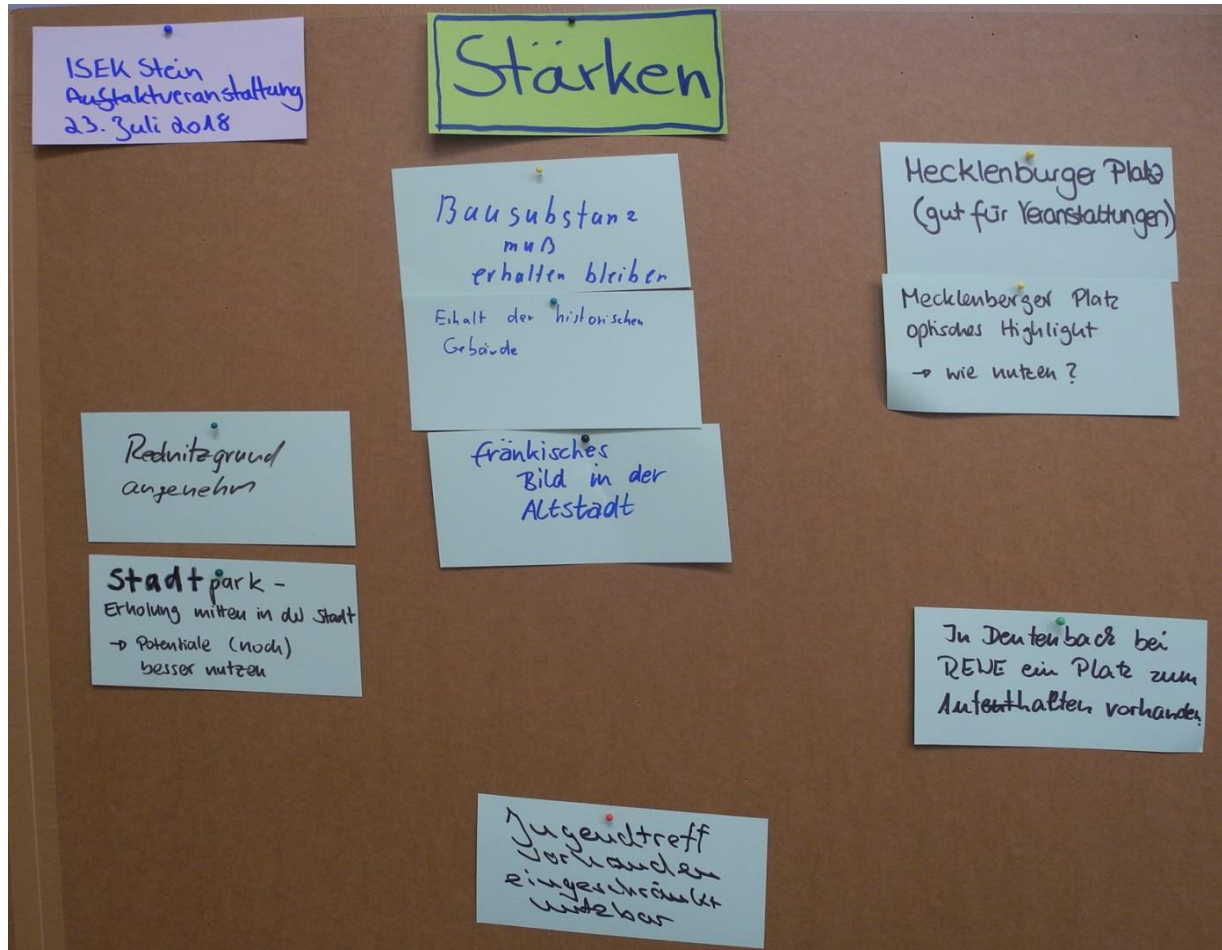 ISEK Stein
Auftaktveranstaltung
23. Juli 2018
Stärken
Bausubstanz
muß
erhalten bleiben
Erhalt der historischen
Gebäude
fränkisches
Bild in der
Altstadt
Mecklenburger Platz
(gut für Veranstaltungen)
Mecklenberger Platz
optisches Highlight
→ wie nutzen?
Rednitzgrund
angenehm
Stadtpark -
Erholung mitten in der Stadt
→ Potentiale (noch)
besser nutzen
In Deutenbach bei
REWE ein Platz zum
Aufenthalten vorhanden
Jugendtreff
vorhanden
eingeschränkt
nutzbar